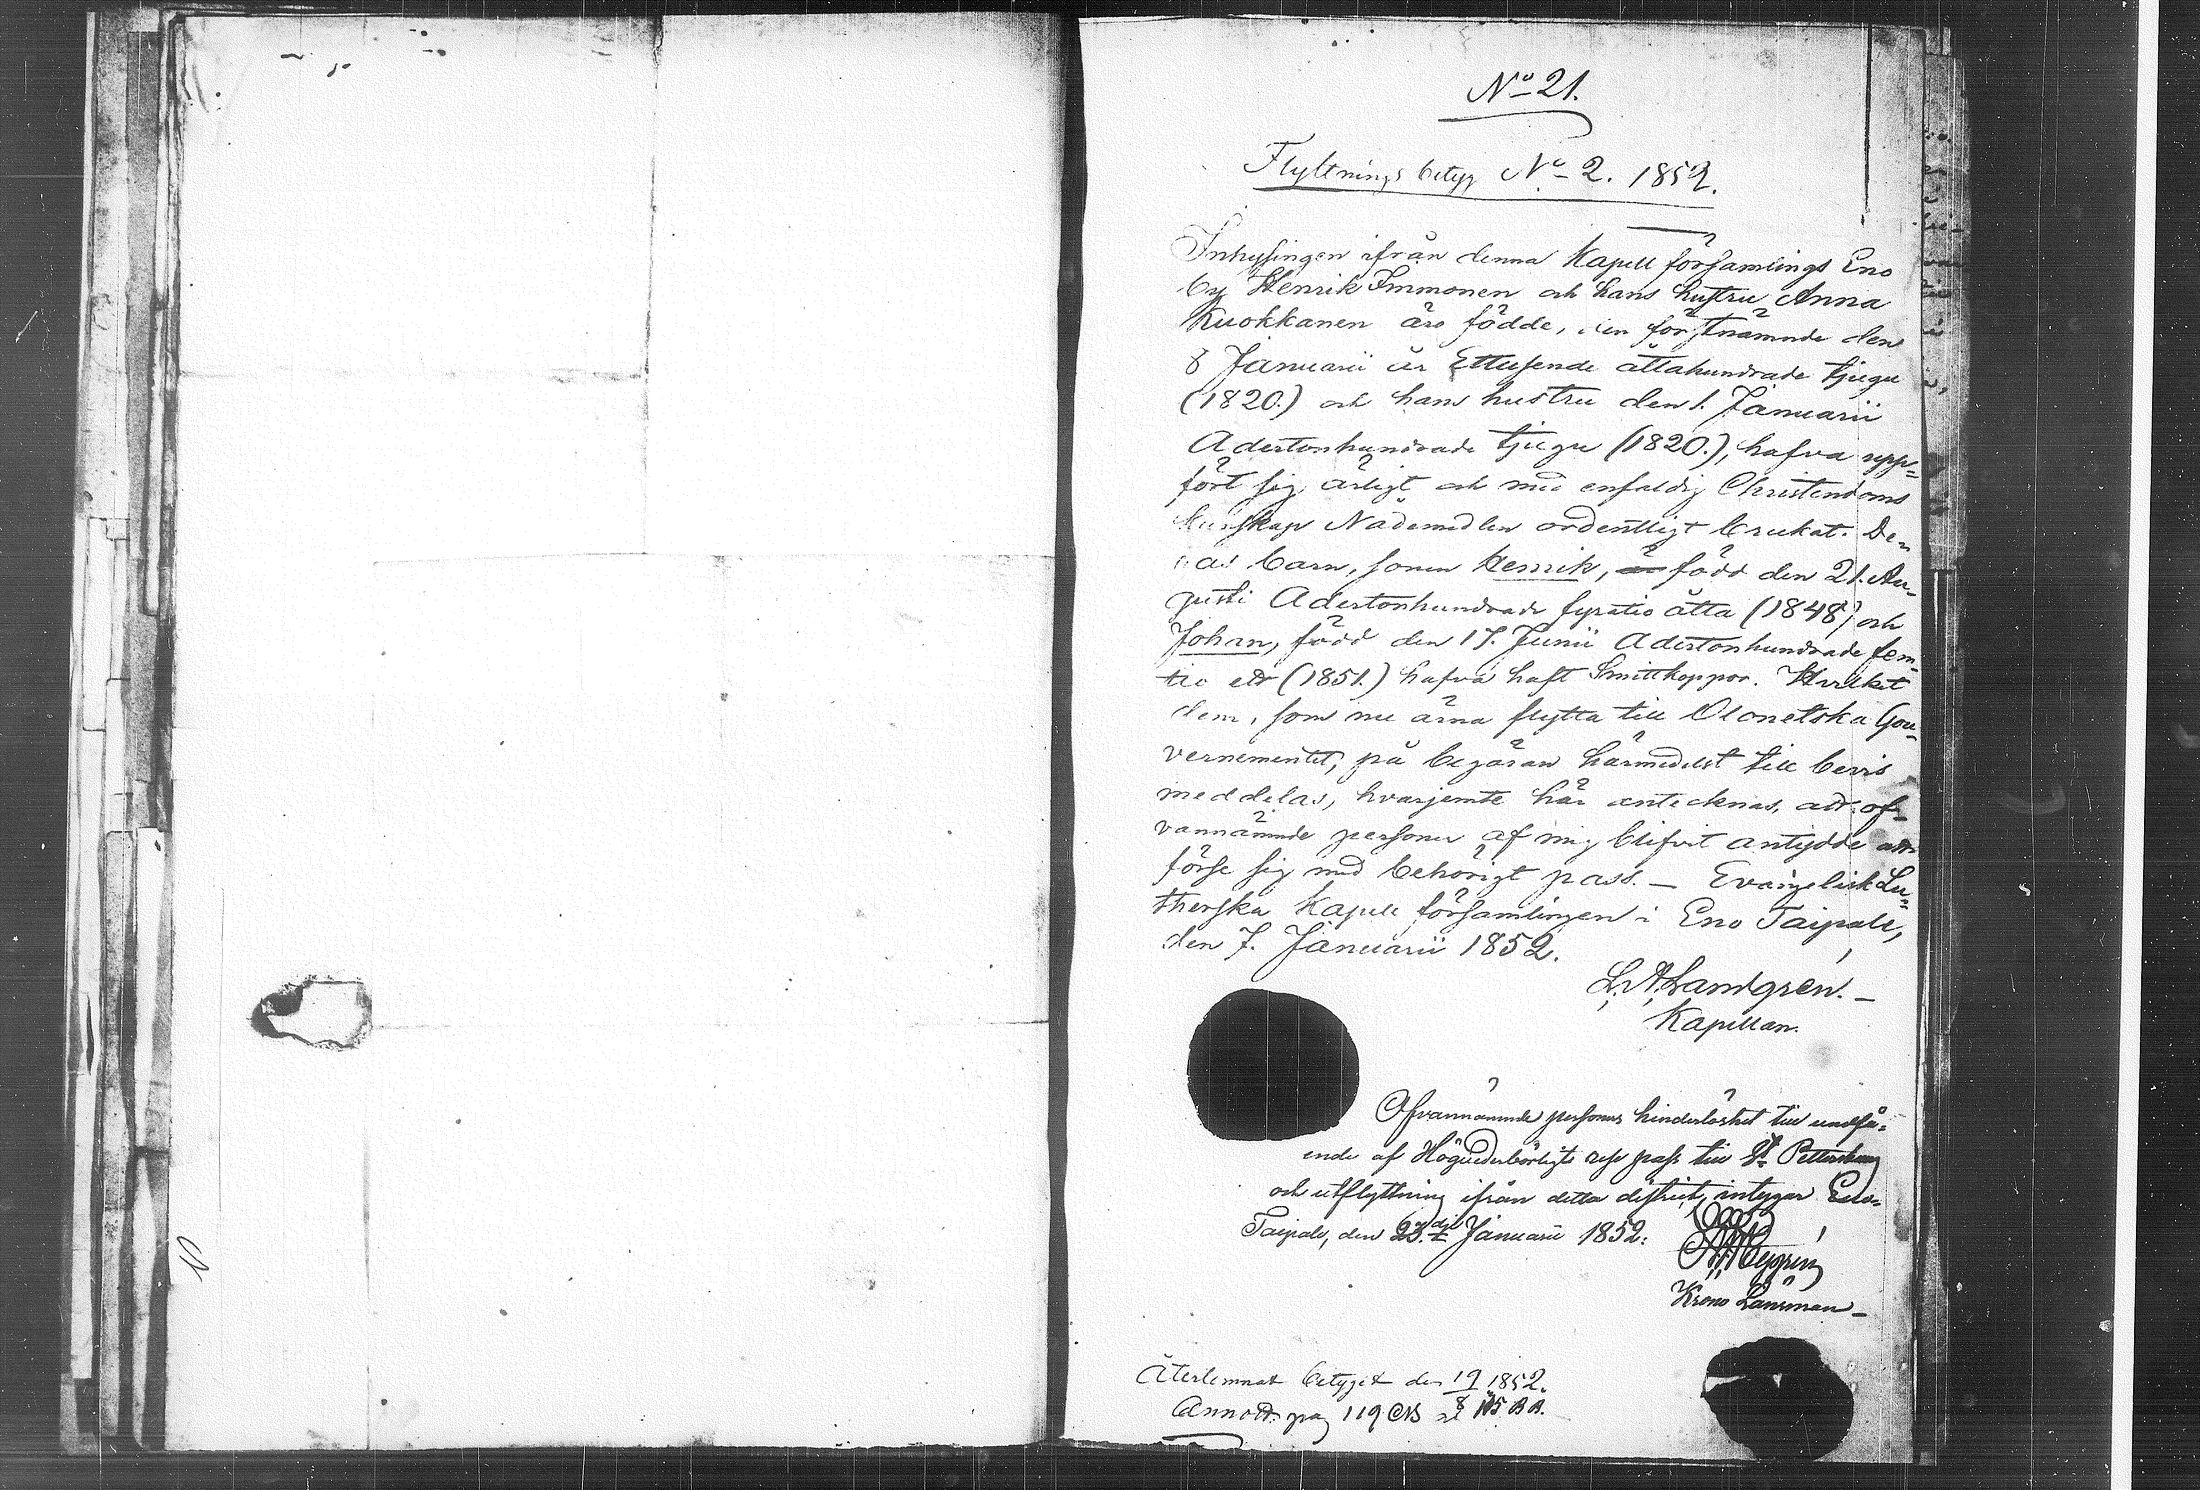 No 21.
Flyttnings betyg No 2. 1852.
Inhysingen ifrån denna Kapell församlings Eno
by Henrik Immonen och hans hustru Anna
Kuokkanen äro födde, den förstnämnde den
8 Januarii år Ettusende åttahundrade tjugu
(1820.) och hans hustru den 1. Januarii
Adertonhundrade tjugu (1820.), hafva upp-
fört sig ärligt och med enfaldig Christendoms
kunskap Nådemedlen ordentligt brukat. De-
ras barn, sonen Henrik, är född den 21. Au-
gusti Adertonhundrade fyratio åtta (1848) och
Johan, född den 17. Junii Adertonhundrade fem-
tio ett (1851.) hafva haft Smittkoppor. Hvilket
dem, som nu ärna flytta till Olonetska Gou-
vernementet, på begäran härmedelst till bevis
meddelas, hvarjemte här antecknas, att of-
vannämnde personer af mig blifvit antydde att
förse sig med behörigt pass. — Evangelisk Lu-
therska Kapell församlingen i Eno Taipale,
den 7. Januarii 1852.
L. A. Landgren. —
Kapellan.
Ofvannämnde personers hinderlöshet till undfå-
ende af Höguederbörligt rese pass till St Pettersburg
och utflyttning ifrån detta district, intygar Eno-
Taipale, den 23. Januarii 1852.
Krono Länsman —
Återlemnat betyget den 19/8 1852.
Annott. pag 119 CB
10